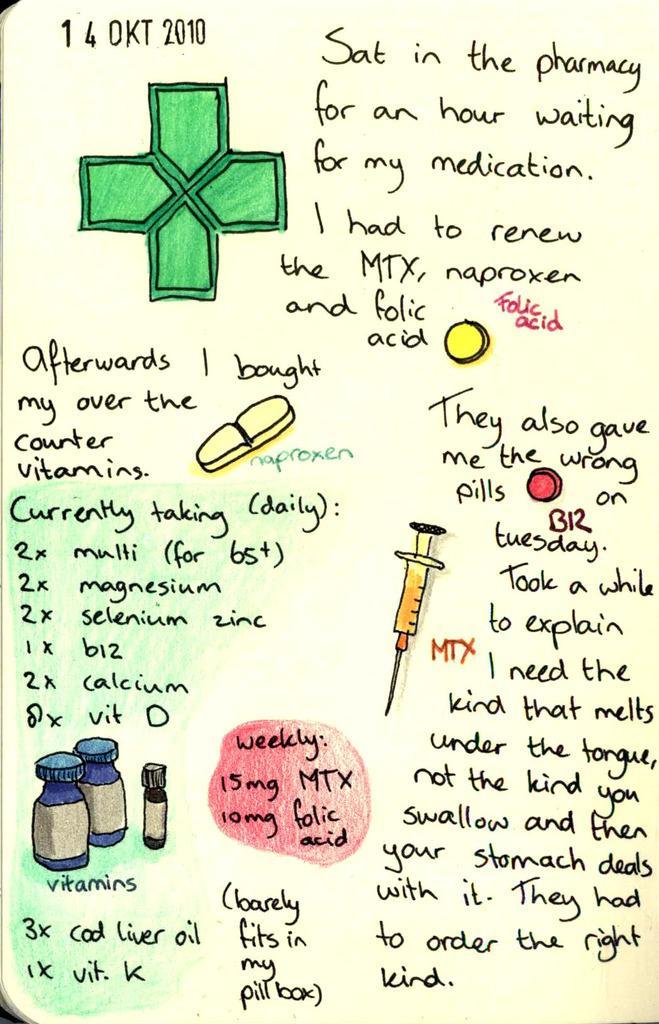 14 OKT 2010
Sat in the pharmacy
for an hour waiting
for my medication.
I had to renew
the MTX, naproxen
and folic
acid
Folic
acid
Afterwards I bought
my over the
counter
vitamins.
naproxen
They also gave
me the wrong
pills on
B12
tuesday.
Took a while
to explain
MTX
I need the
kind that melts
under the tongue,
not the kind you
swallow and then
your stomach deals
with it. They had
to order the right
kind.
Currently taking (daily):
2x multi (for 65+)
2x magnesium
2x selenium zinc
1x b12
2x calcium
8x vit D
vitamins
3x cod liver oil
1x vit. K
weekly:
15mg MTX
10mg folic
acid
(barely
fits in
my
pill box)